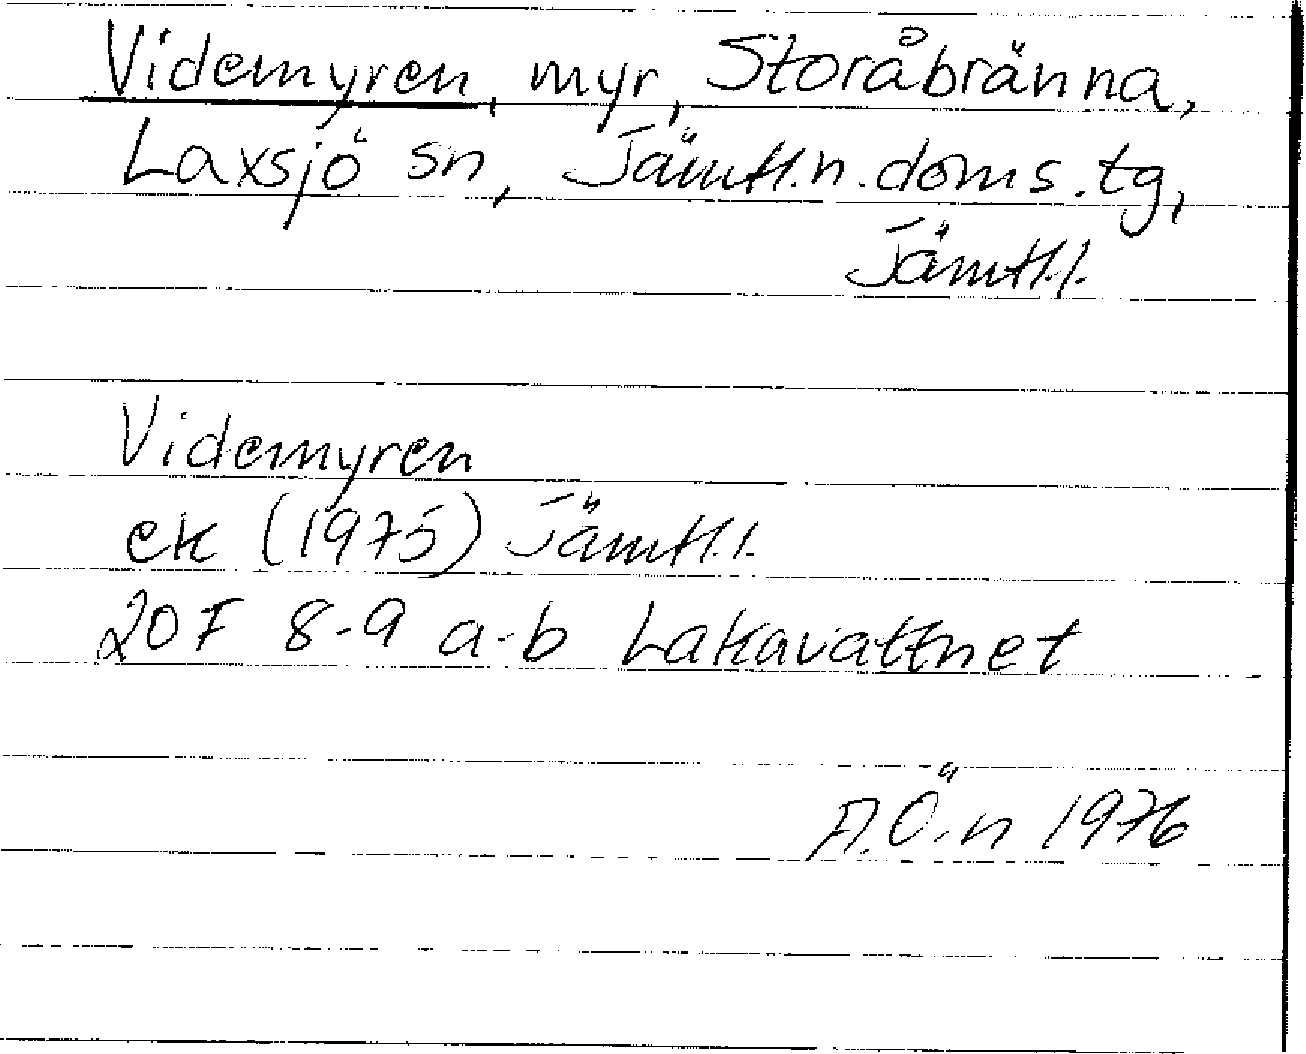 Videmyren, myr, Storåbränna,
Laxsjö sn, Jämtl.n.doms.tg,
Jämtl.l.
Videmyren
ek (1975) Jämtl.l.
20F 8-9 a-b Lakavattnet
A.Ö-n 1976